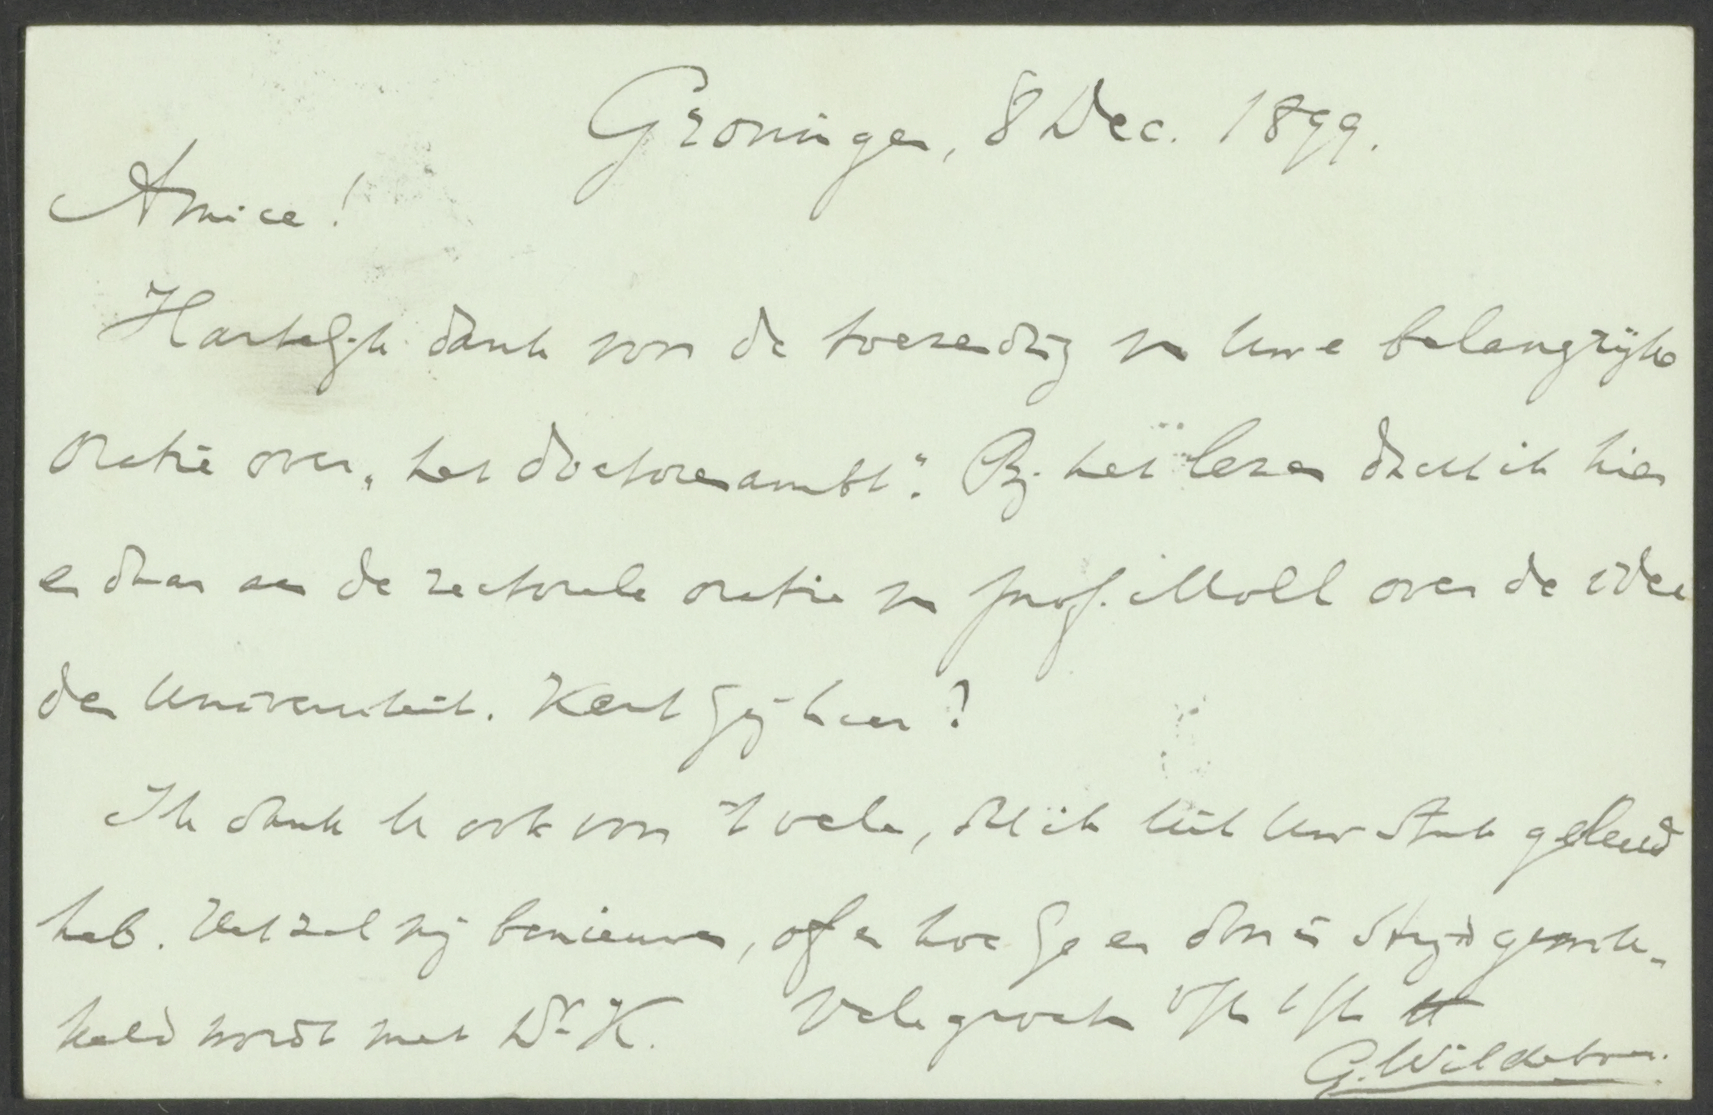 Groningen, 8 Dec. 1899.
Amice!
Hartelijk dank voor de toezending van Uwe belangrijke
oratie over „het doctorenambt". Bij het lezen dacht ik hier
en daar aan de rectorale oratie van prof. Moll over de idee
der Universiteit. Kent gij haar?
Ik dank U ook voor 't vele, dat ik uit Uw stuk geleerd
heb. Het zal mij benieuwen, of en hoe Ge er door in strijd gewik-
keld wordt met Dr. K. Vele groeten
G. Wildeboer.